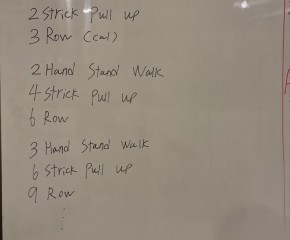 2 Strick Pull up
3 Row (cal)
2 Hand Stand Walk
4 Strick Pull up
6 Row
3 Hand Stand Walk
6 Strick Pull up
9 Row